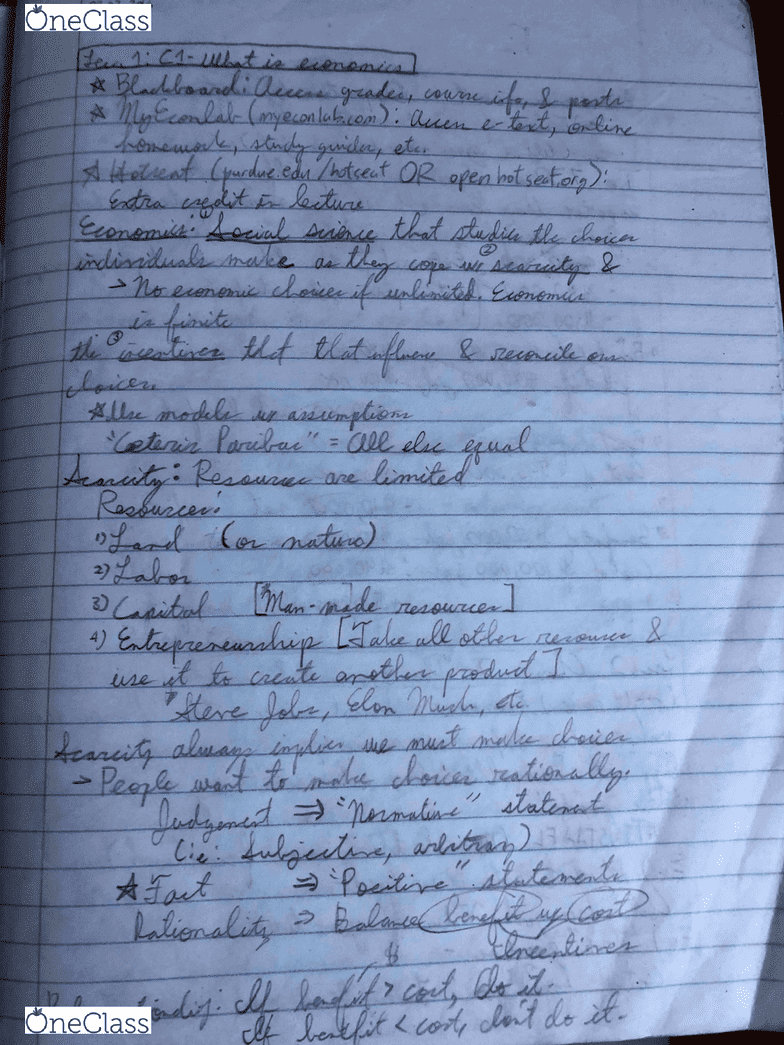 OneClass
Lec 1: C1- What is economics
☆ Blackboard: Access grades, course info, & posts
☆ MyEconlab (myeconlab.com): Access e-text, online
homework, study guides, etc.
☆ Hotseat (purdue.edu/hotseat OR openhotseat.org):
Extra credit in lecture
Economics: ① Social science that studies the choices
individuals make as they cope w/ ② scarcity &
→ No economic choices if unlimited. Economics
is finite
the ③ incentives that that influence & reconcile our
choices
☆ Use models w/ assumptions
"Ceteris Paribus" = All else equal
Scarcity: Resources are limited
Resources:
1) Land (or nature)
2) Labor
3) Capital [Man-made resources]
4) Entrepreneurship [Take all other resources &
use it to create another product]
Steve Jobs, Elon Musk, etc.
Scarcity always implies we must make choices
→ People want to make choices rationally.
Judgement ⇒ "Normative" statement
(ie: Subjective, arbitrary)
☆ Fact ⇒ "Positive" statements
Rationality ⇒ Balance benefit w/ cost
Incentives
If benefit > cost, Do it.
If benefit < cost, don't do it.
OneClass